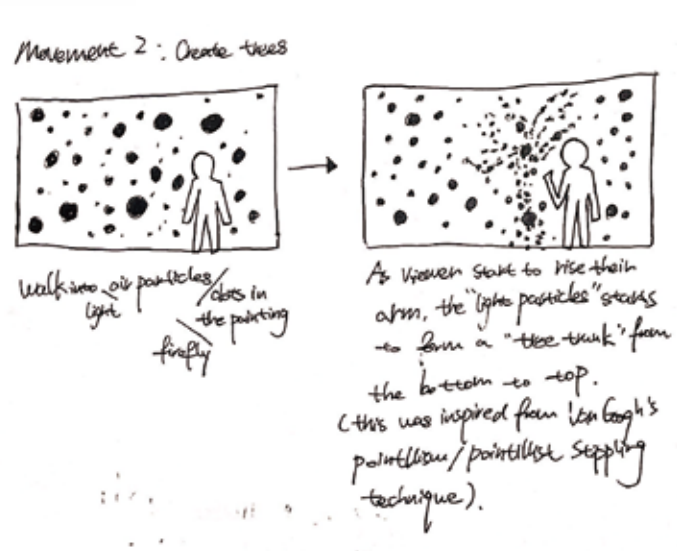 Movement 2: Create trees
walk into air particles/
light
dots in
the painting
firefly
As viewer start to rise their
arm, the "light particles" starts
to form a "tree trunk" from
the bottom to top.
(this was inspired from Van Gogh's
pointillism/pointillist stippling
technique).